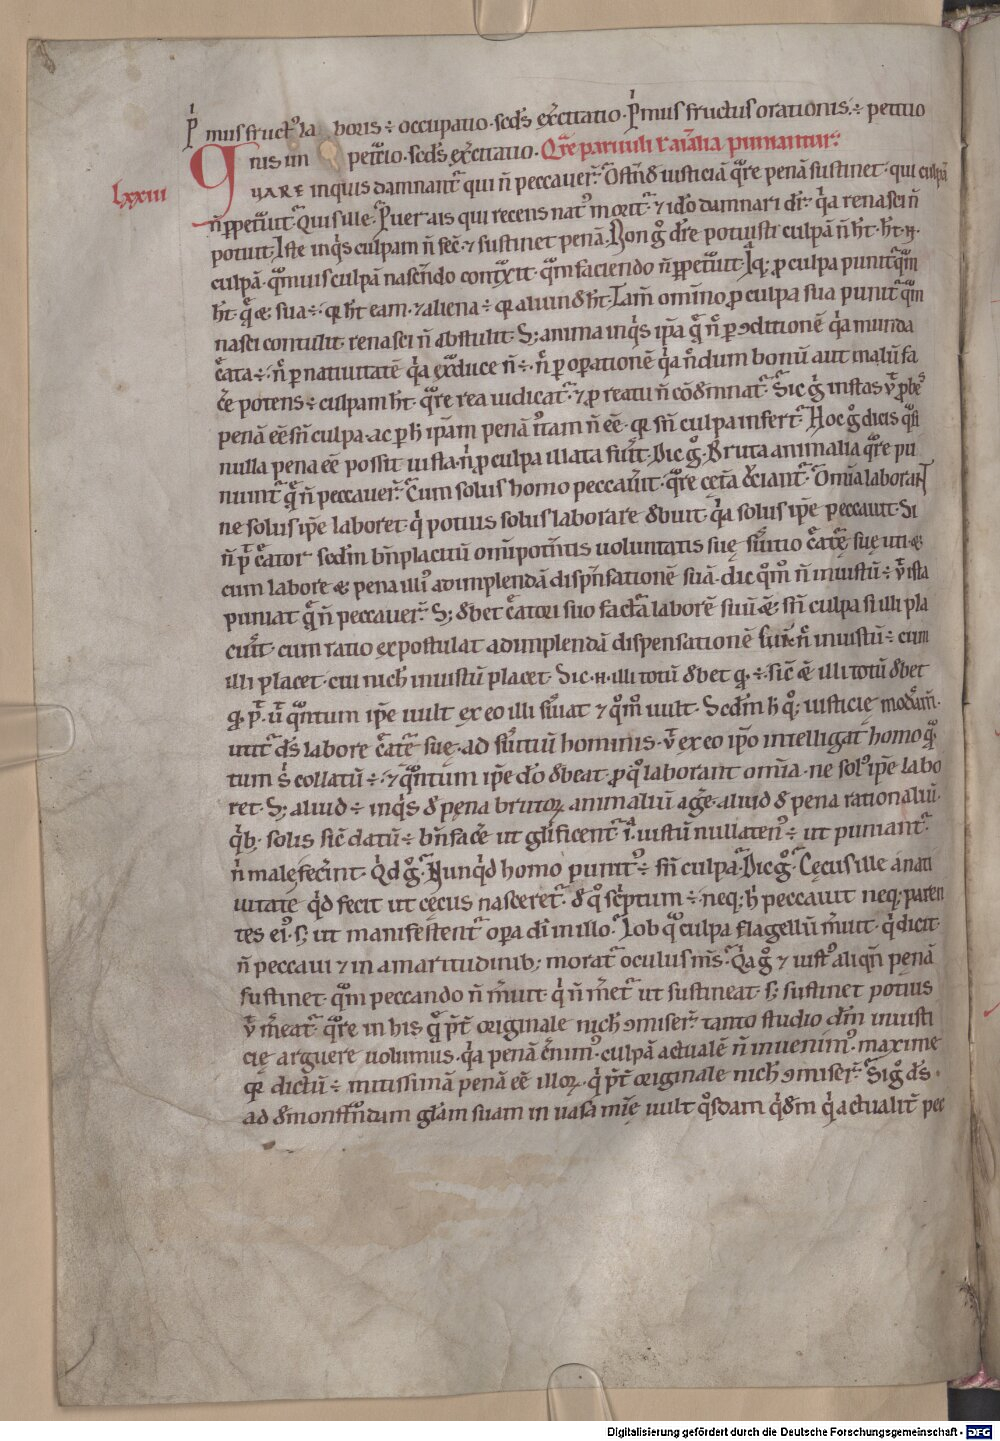 P'mus fruct' la boris ÷ occupatio · scd's exc̄itatio · P'mus fructus orationis ÷ petitio
nis im petitio · scd's exc̄itatio · Qr̄e paruuli ⁊ aīalia puniantur.
lxxiii
QUARE inquis damnant̄ qui n̄ peccauer̄. Ostn̄d iusticiā qr̄e penā sustinet · qui culpā
n̄ ppetuit. Quis ille. Puer ais qui recens nat' morit̄ · ⁊ ido damnari dr̄ · qa renasci n̄
potuit. Iste inqs culpam n̄ fec̄ · ⁊ sustinet penā. Non g° dr̄e potuisti culpā n̄ ht̄ · ht̄ ·
culpā · qmuis culpā nascn̄do contxit · qm faciendo n̄ ppetuit. Iq; p culpa punit̄ qm
ht̄ · q ē sua ÷ · qr ht̄ eam · ⁊ aliena ÷ qr aliund ht̄ · Iam omīno p culpa sua punit̄ qm
nasci contulit · renasci n̄ abstulit · S; anima inqs ipa q n̄ p ꝯditionē qa munda
c̄ata ÷ · n̄ p natiuitatē qa ex duce n̄ ÷ · n̄ p operationē qa n̄dum bonū aut malū fa
c̄e potens ÷ culpam ht̄ · qr̄e rea iudicat̄ · ⁊ p reatu n̄ cōdemnat̄. Sic g instas
penā eē sn̄ culpa · ac p h ipam penā n̄ eē · qr sn̄ culpa infert̄. Hoc g° dicis qsi
nulla pena eē possit iusta · n̄ p culpa illata fuīt · Dic g° · Bruta animalia qr̄e pu
niunt̄ q n̄ peccauer̄. Cum solus homo peccauīt · qr̄e cet̄a cciant̄. Omīa laborant
ne solus ipe laboret · q potius solus laborare debuit · qa solus ipe peccauit · Si
n̄ p c̄ator scdm bn̄placitū omīpotn̄tis uoluntatis suę suitio c̄atę suę uti ·
cum labore ⁊ pena illi' adimplendā dispn̄sationē suā · dic qm n̄ iniustū ÷ ista
puniat q n̄ peccauer̄. S; debet c̄atori suo fact̄a laborē suū ⁊ sn̄ culpa si illi pla
cuīt · cum ratio expostulat adimplendā dispensationē suā · n̄ iniustū ÷ cum
illi placet · cui nich iniustū placet · Sic n̄ illi totū debet q ÷ · sic̄ ⁊ illi totū debet
q p. u qntum ipe uult ex eo illi suiat ⁊ qm uult · Scdm h q; iusticię modam ·
utit̄ ds labore c̄atę suę · ad suitiū hominis · u ex eo ipo intelligat homo qn
tum s collatū ÷ · ⁊ qntum ipe do debeat · p q laborant omīa · ne sol' ipe labo
ret · S; aliud ÷ inqs d pęna brutorum animaliū age · aliud d pena rationaliū ·
qb; solis sic datū ÷ bn̄facē ut glificent̄ · i iustū nullaten' ÷ ut puniant̄
n̄ malefecint · Qd g°. Nunqd homo punit' ÷ sn̄ culpa. Dic g°. Cęcus ille a nati
uitate qd fecit ut cęcus nasceret̄ · d q scriptum ÷ · neq; h peccauit neq; paren
tes ei' · s; ut manifestent̄ opa di in illo. Iob q culpa flagellū mīuit · q dicit ·
n̄ peccaui ⁊ in amaritudinib; morat̄ oculus ms. Qa g° ⁊ iust' aliqn̄ penā
sustinet · qm peccando n̄ mīuit · q n̄ met̄ ut sustineat · s; sustinet potius
u meat̄ · qr̄e in his q pt̄ originale nich ꝯmiser̄ · tanto studio dm iniusti
cię arguere uolumus · qa penā c̄nim' · culpā actualē n̄ inuenim' · maxime
qr dictū ÷ mitissimā penā eē illorum · q pt̄ originale nich ꝯmiser̄. Si g° ds ·
ad demonstrandam glam suam in uasa mīę uult qsdam qdem q actualit̄ pec
Digitalisierung gefördert durch die Deutsche Forschungsgemeinschaft - DFG